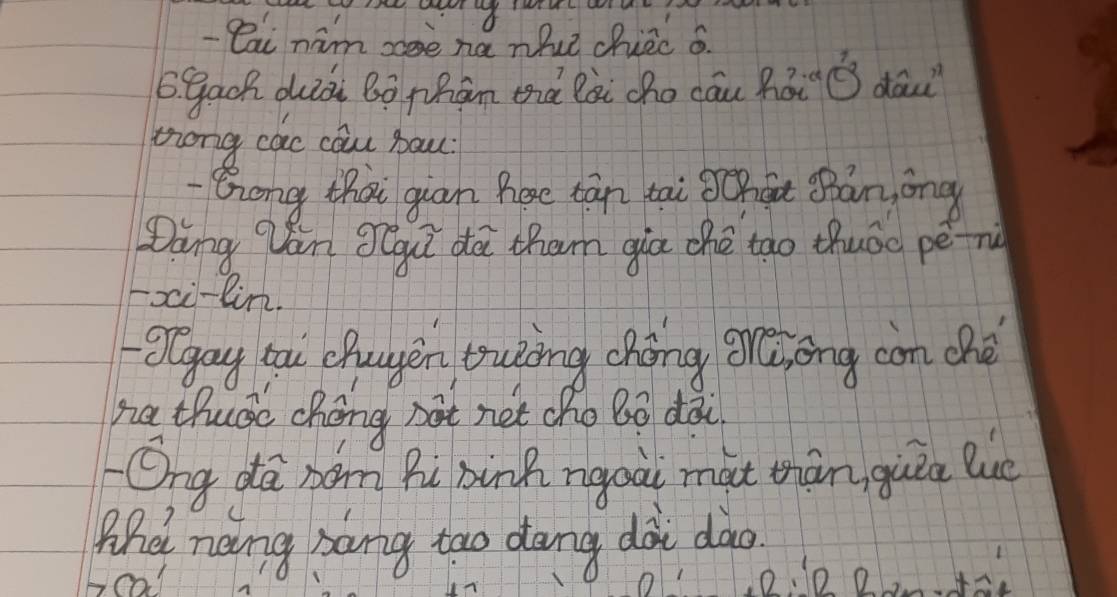 - Cái nấm xoè ra như chiếc ô.
6. Gạch dưới bộ phận trả lời cho câu hỏi "Ở đâu"
trong các câu sau:
- Trong thời gian học tập tại Nhật Bản, ông
Đặng Văn Ngữ đã tham gia chế tạo thuốc pê-ni
-xi-lin.
- Ngay tại chuyến trường chống Mĩ, ông còn chế
ra thuốc chống sốt rét cho bộ đội.
- Ông đã sớm hi sinh ngoài mặt trận, giữa lúc
khả năng sáng tạo đang dồi dào.